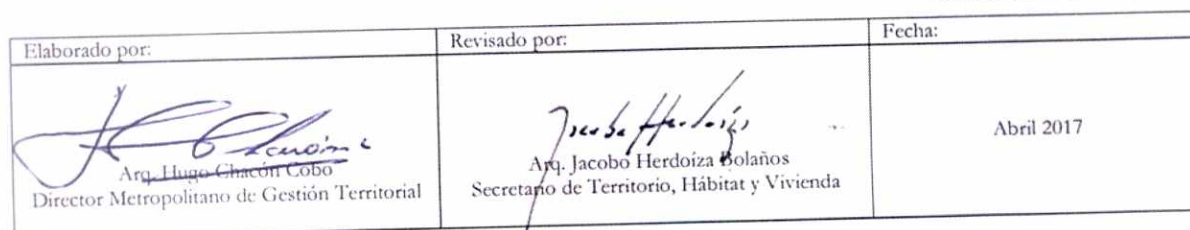 Elaborado por:
Revisado por:
Fecha:
Arq. Hugo Chacón Cobo
Director Metropolitano de Gestión Territorial
Arq. Jacobo Herdoíza Bolaños
Secretario de Territorio, Hábitat y Vivienda
Abril 2017